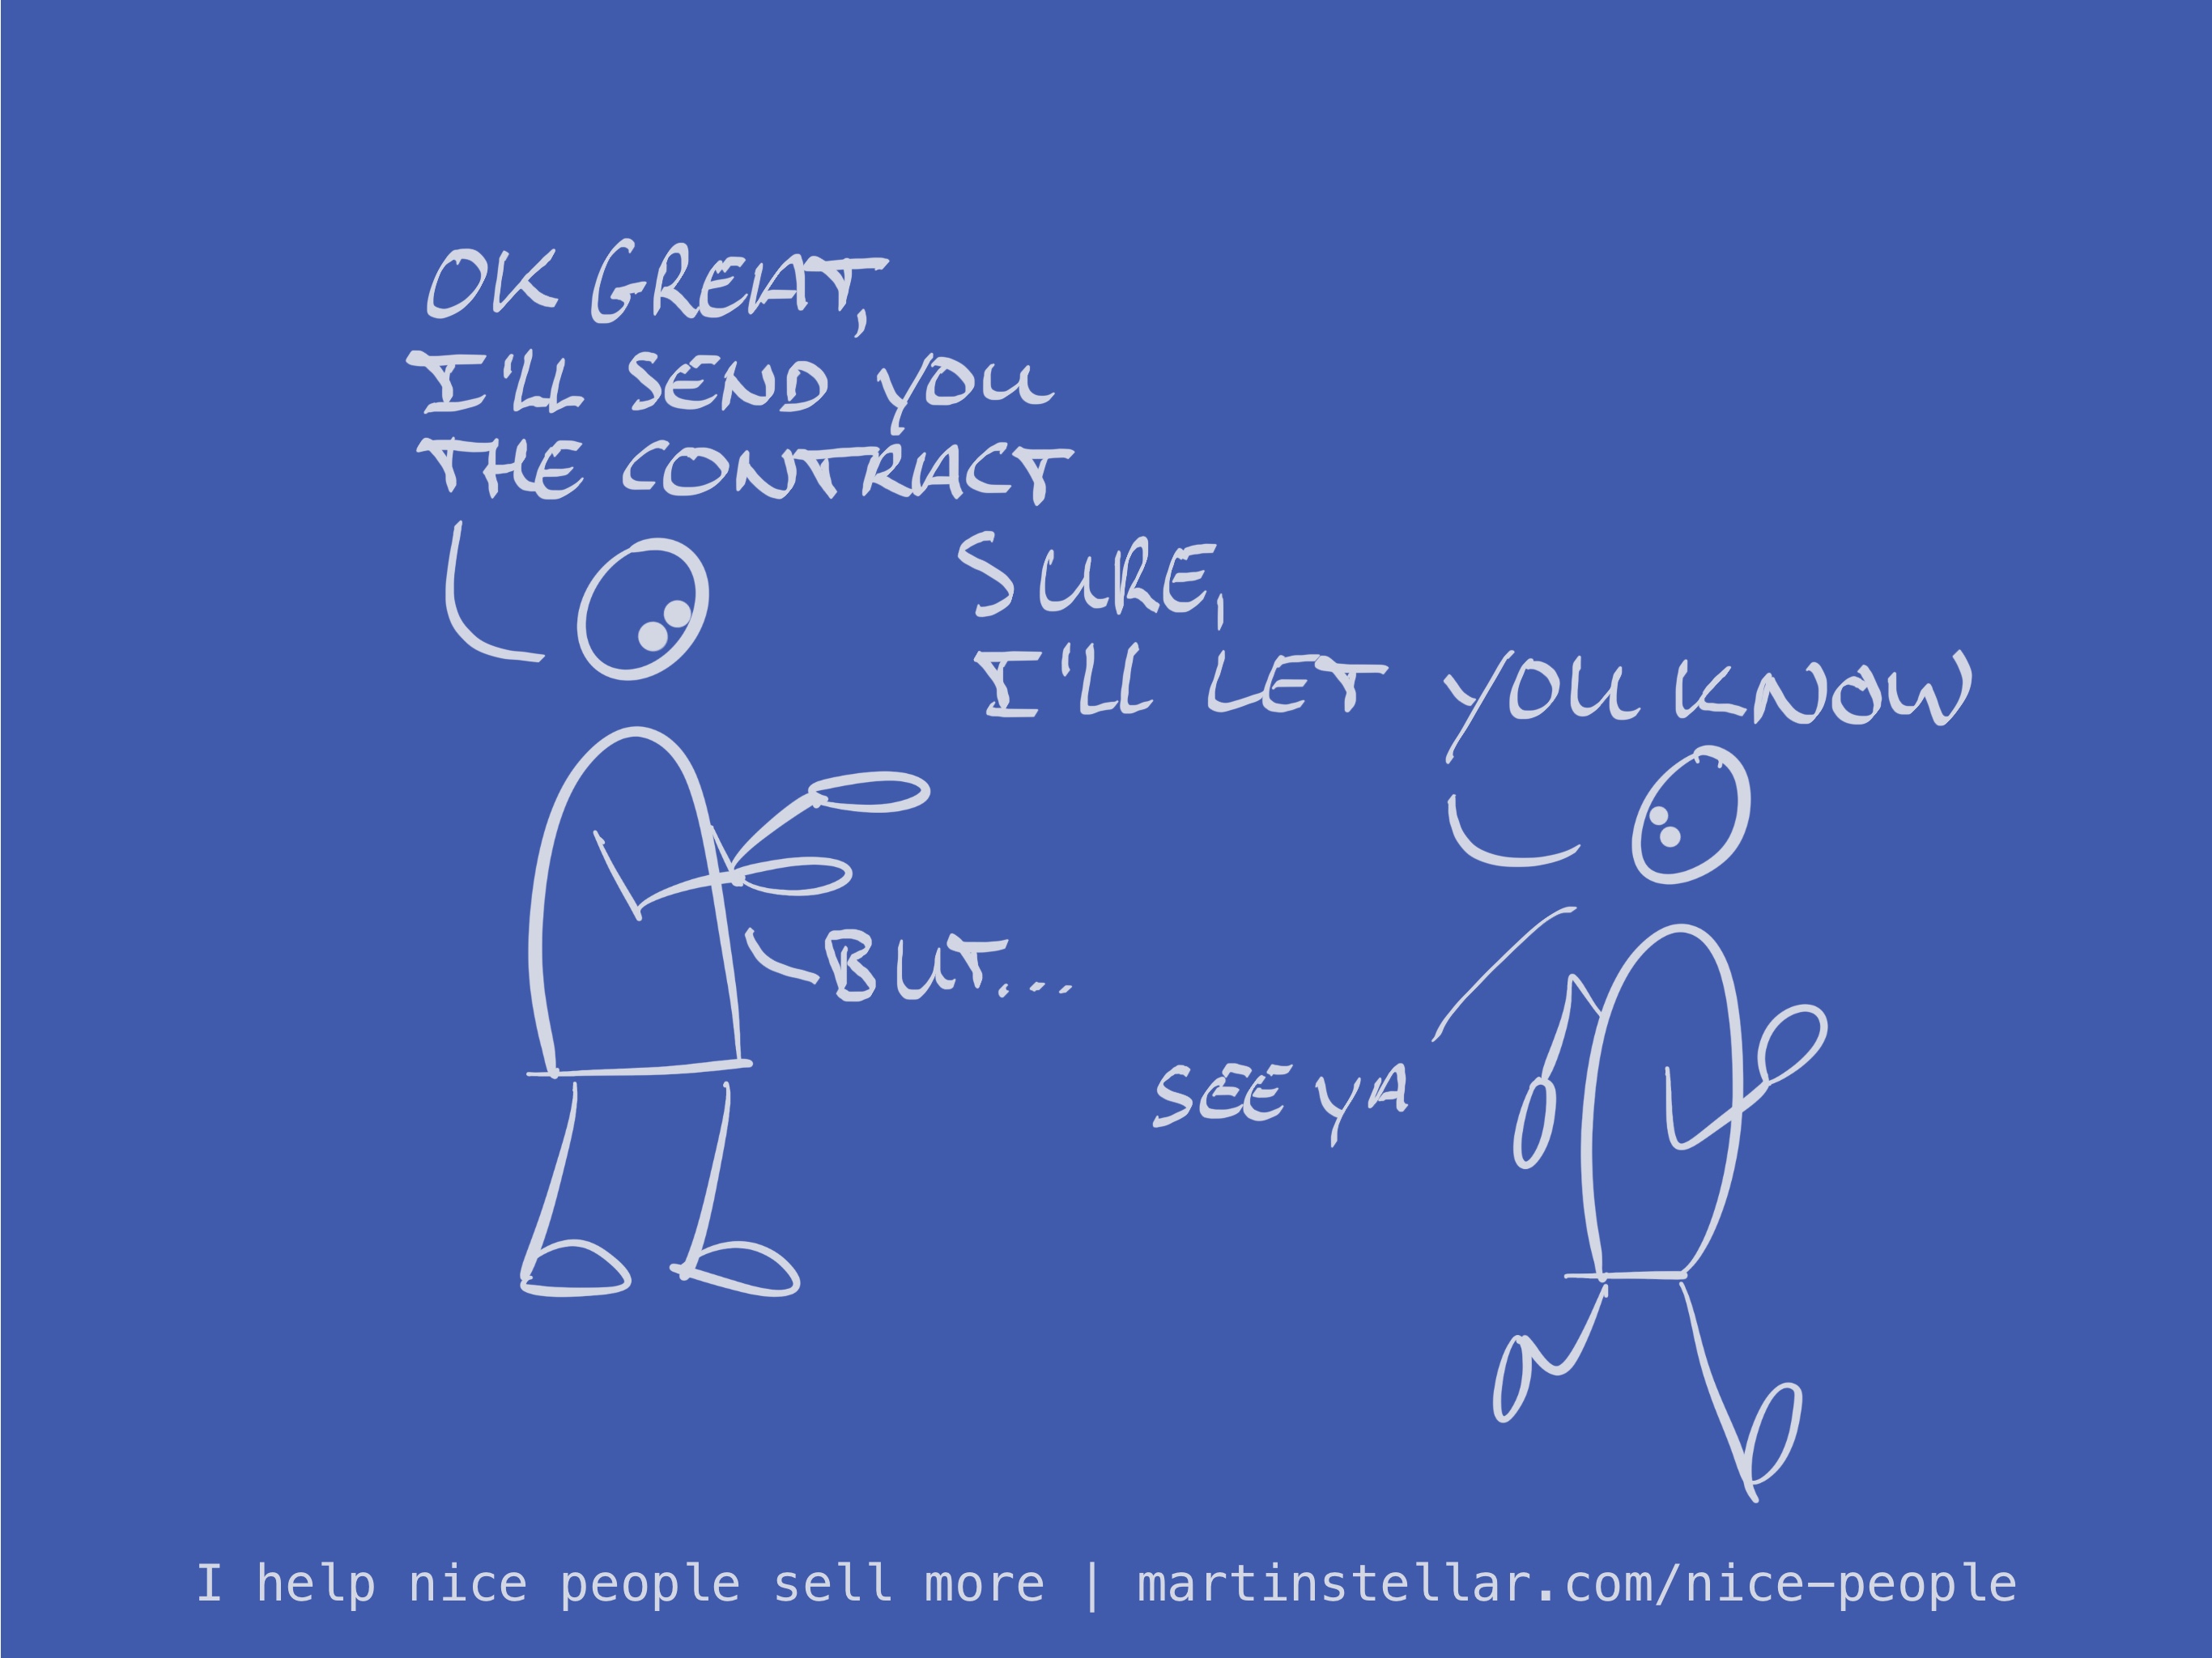 OK GREAT,
I'LL SEND YOU
THE CONTRACT
SURE,
I'LL LET YOU KNOW
BUT...
SEE YA
I help nice people sell more | martinstellar.com/nice-people